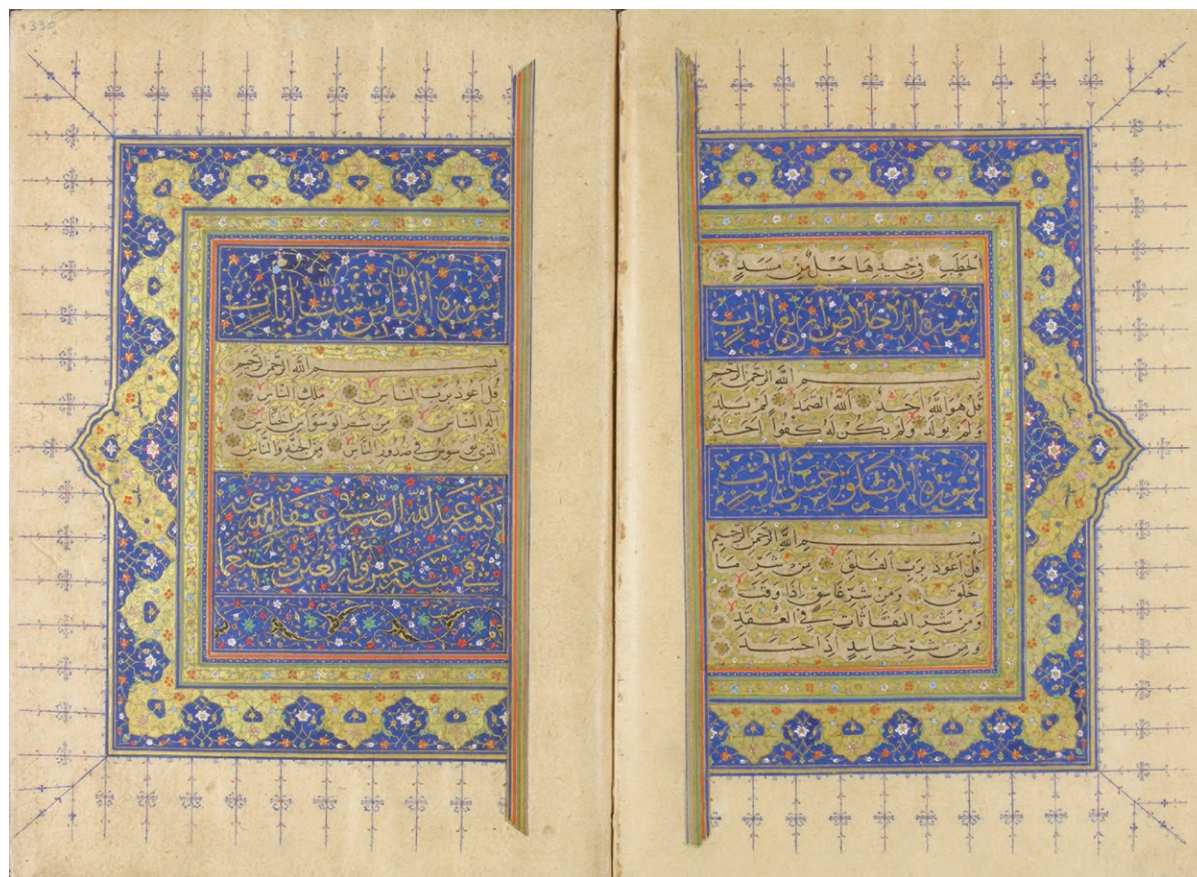 الْحَطَبِ فِي جِيدِهَا حَبْلٌ مِنْ مَسَدٍ
سورة الاخلاص اربع ايات
بسم الله الرحمن الرحيم
قُلْ هُوَ اللَّهُ أَحَدٌ اللَّهُ الصَّمَدُ لَمْ يَلِدْ
وَلَمْ يُولَدْ وَلَمْ يَكُنْ لَهُ كُفُوًا أَحَدٌ
سورة الفلق خمس ايات
بسم الله الرحمن الرحيم
قُلْ أَعُوذُ بِرَبِّ الْفَلَقِ مِنْ شَرِّ مَا
خَلَقَ وَمِنْ شَرِّ غَاسِقٍ إِذَا وَقَبَ
وَمِنْ شَرِّ النَّفَّاثَاتِ فِي الْعُقَدِ
وَمِنْ شَرِّ حَاسِدٍ إِذَا حَسَدَ
330
سورة الناس ست ايات
بسم الله الرحمن الرحيم
قُلْ أَعُوذُ بِرَبِّ النَّاسِ مَلِكِ النَّاسِ
إِلَهِ النَّاسِ مِنْ شَرِّ الْوَسْوَاسِ الْخَنَّاسِ
الَّذِي يُوَسْوِسُ فِي صُدُورِ النَّاسِ مِنَ الْجِنَّةِ وَالنَّاسِ
كتبه عبد الله الصيرفي عفا الله عنه
في سنة خمس واربعين وسبعما